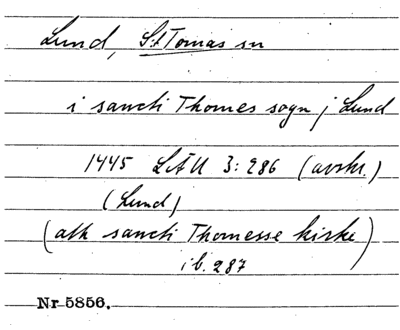 Lund, S:t Tomas sn
i sancti Thomes sogn j Lund
1445 LÄU 3:286 (avskr.)
(Lund)
(atk sancti Thomesse kirke)
ib. 287
Nr 5856.